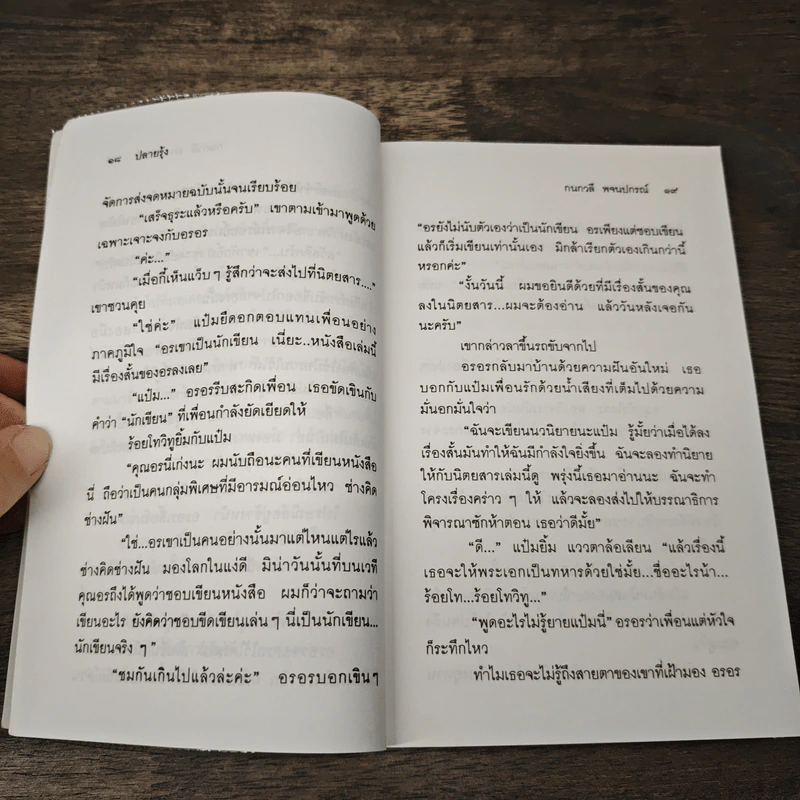 ๑๘ ปลายรุ้ง
จัดการส่งจดหมายฉบับนั้นจนเรียบร้อย
“เสร็จธุระแล้วหรือครับ” เขาตามเข้ามาพูดด้วย
เฉพาะเจาะจงกับอรอร
“ค่ะ...”
“เมื่อกี้เห็นแว็บๆ รู้สึกว่าจะส่งไปที่นิตยสาร....”
เขาชวนคุย
“ใช่ค่ะ” แป๋มยืดอกตอบแทนเพื่อนอย่าง
ภาคภูมิใจ “อรเขาเป็นนักเขียน เนี่ยะ..หนังสือเล่มนี้
มีเรื่องสั้นของอรลงเลย”
“แป๋ม...” อรอรรีบสะกิดเพื่อน เธอขัดเขินกับ
คำว่า “นักเขียน” ที่เพื่อนกำลังยัดเยียดให้
ร้อยโทวิทูยิ้มกับแป๋ม
“คุณอรนี่เก่งนะ ผมนับถือนะคนที่เขียนหนังสือ
นี่ ถือว่าเป็นคนกลุ่มพิเศษที่มีอารมณ์อ่อนไหว ช่างคิด
ช่างฝัน”
“ใช่...อรเขาเป็นคนอย่างนั้นมาแต่ไหนแต่ไรแล้ว
ช่างคิดช่างฝัน มองโลกในแง่ดี มิน่าวันนั้นที่บนเวที
คุณอรถึงได้พูดว่าชอบเขียนหนังสือ ผมก็ว่าจะถามว่า
เขียนอะไร ยังคิดว่าชอบขีดเขียนเล่นๆ นี่เป็นนักเขียน...
นักเขียนจริง ๆ”
“ชมกันเกินไปแล้วล่ะค่ะ” อรอรบอกเขินๆ
กนกวลี พจนปกรณ์ ๑๙
“อรยังไม่นับตัวเองว่าเป็นนักเขียน อรเพียงแต่ชอบเขียน
แล้วก็เริ่มเขียนเท่านั้นเอง มิกล้าเรียกตัวเองเกินกว่านี้
หรอกค่ะ”
“งั้นวันนี้ ผมขอยินดีด้วยที่มีเรื่องสั้นของคุณ
ลงในนิตยสาร...ผมจะต้องอ่าน แล้ววันหลังเจอกัน
นะครับ”
เขากล่าวลาขึ้นรถขับจากไป
อรอรกลับมาบ้านด้วยความฝันอันใหม่ เธอ
บอกกับแป๋มเพื่อนรักด้วยน้ำเสียงที่เต็มไปด้วยความ
มั่นอกมั่นใจว่า
“ฉันจะเขียนนวนิยายนะแป๋ม รู้มั้ยว่าเมื่อได้ลง
เรื่องสั้นมันทำให้ฉันมีกำลังใจยิ่งขึ้น ฉันจะลองทำนิยาย
ให้กับนิตยสารเล่มนี้ดู พรุ่งนี้เธอมาอ่านนะ ฉันจะทำ
โครงเรื่องคร่าว ๆ ให้ แล้วจะลองส่งไปให้บรรณาธิการ
พิจารณาซักห้าตอน เธอว่าดีมั้ย”
“ดี...” แป๋มยิ้ม แววตาล้อเลียน “แล้วเรื่องนี้
เธอจะให้พระเอกเป็นทหารด้วยใช่มั้ย...ชื่ออะไรน้า...
ร้อยโท...ร้อยโทวิทู...”
“พูดอะไรไม่รู้ยายแป๋มนี่” อรอรว่าเพื่อนแต่หัวใจ
ก็ระทึกไหว
ทำไมเธอจะไม่รู้ถึงสายตาของเขาที่เฝ้ามอง อรอร